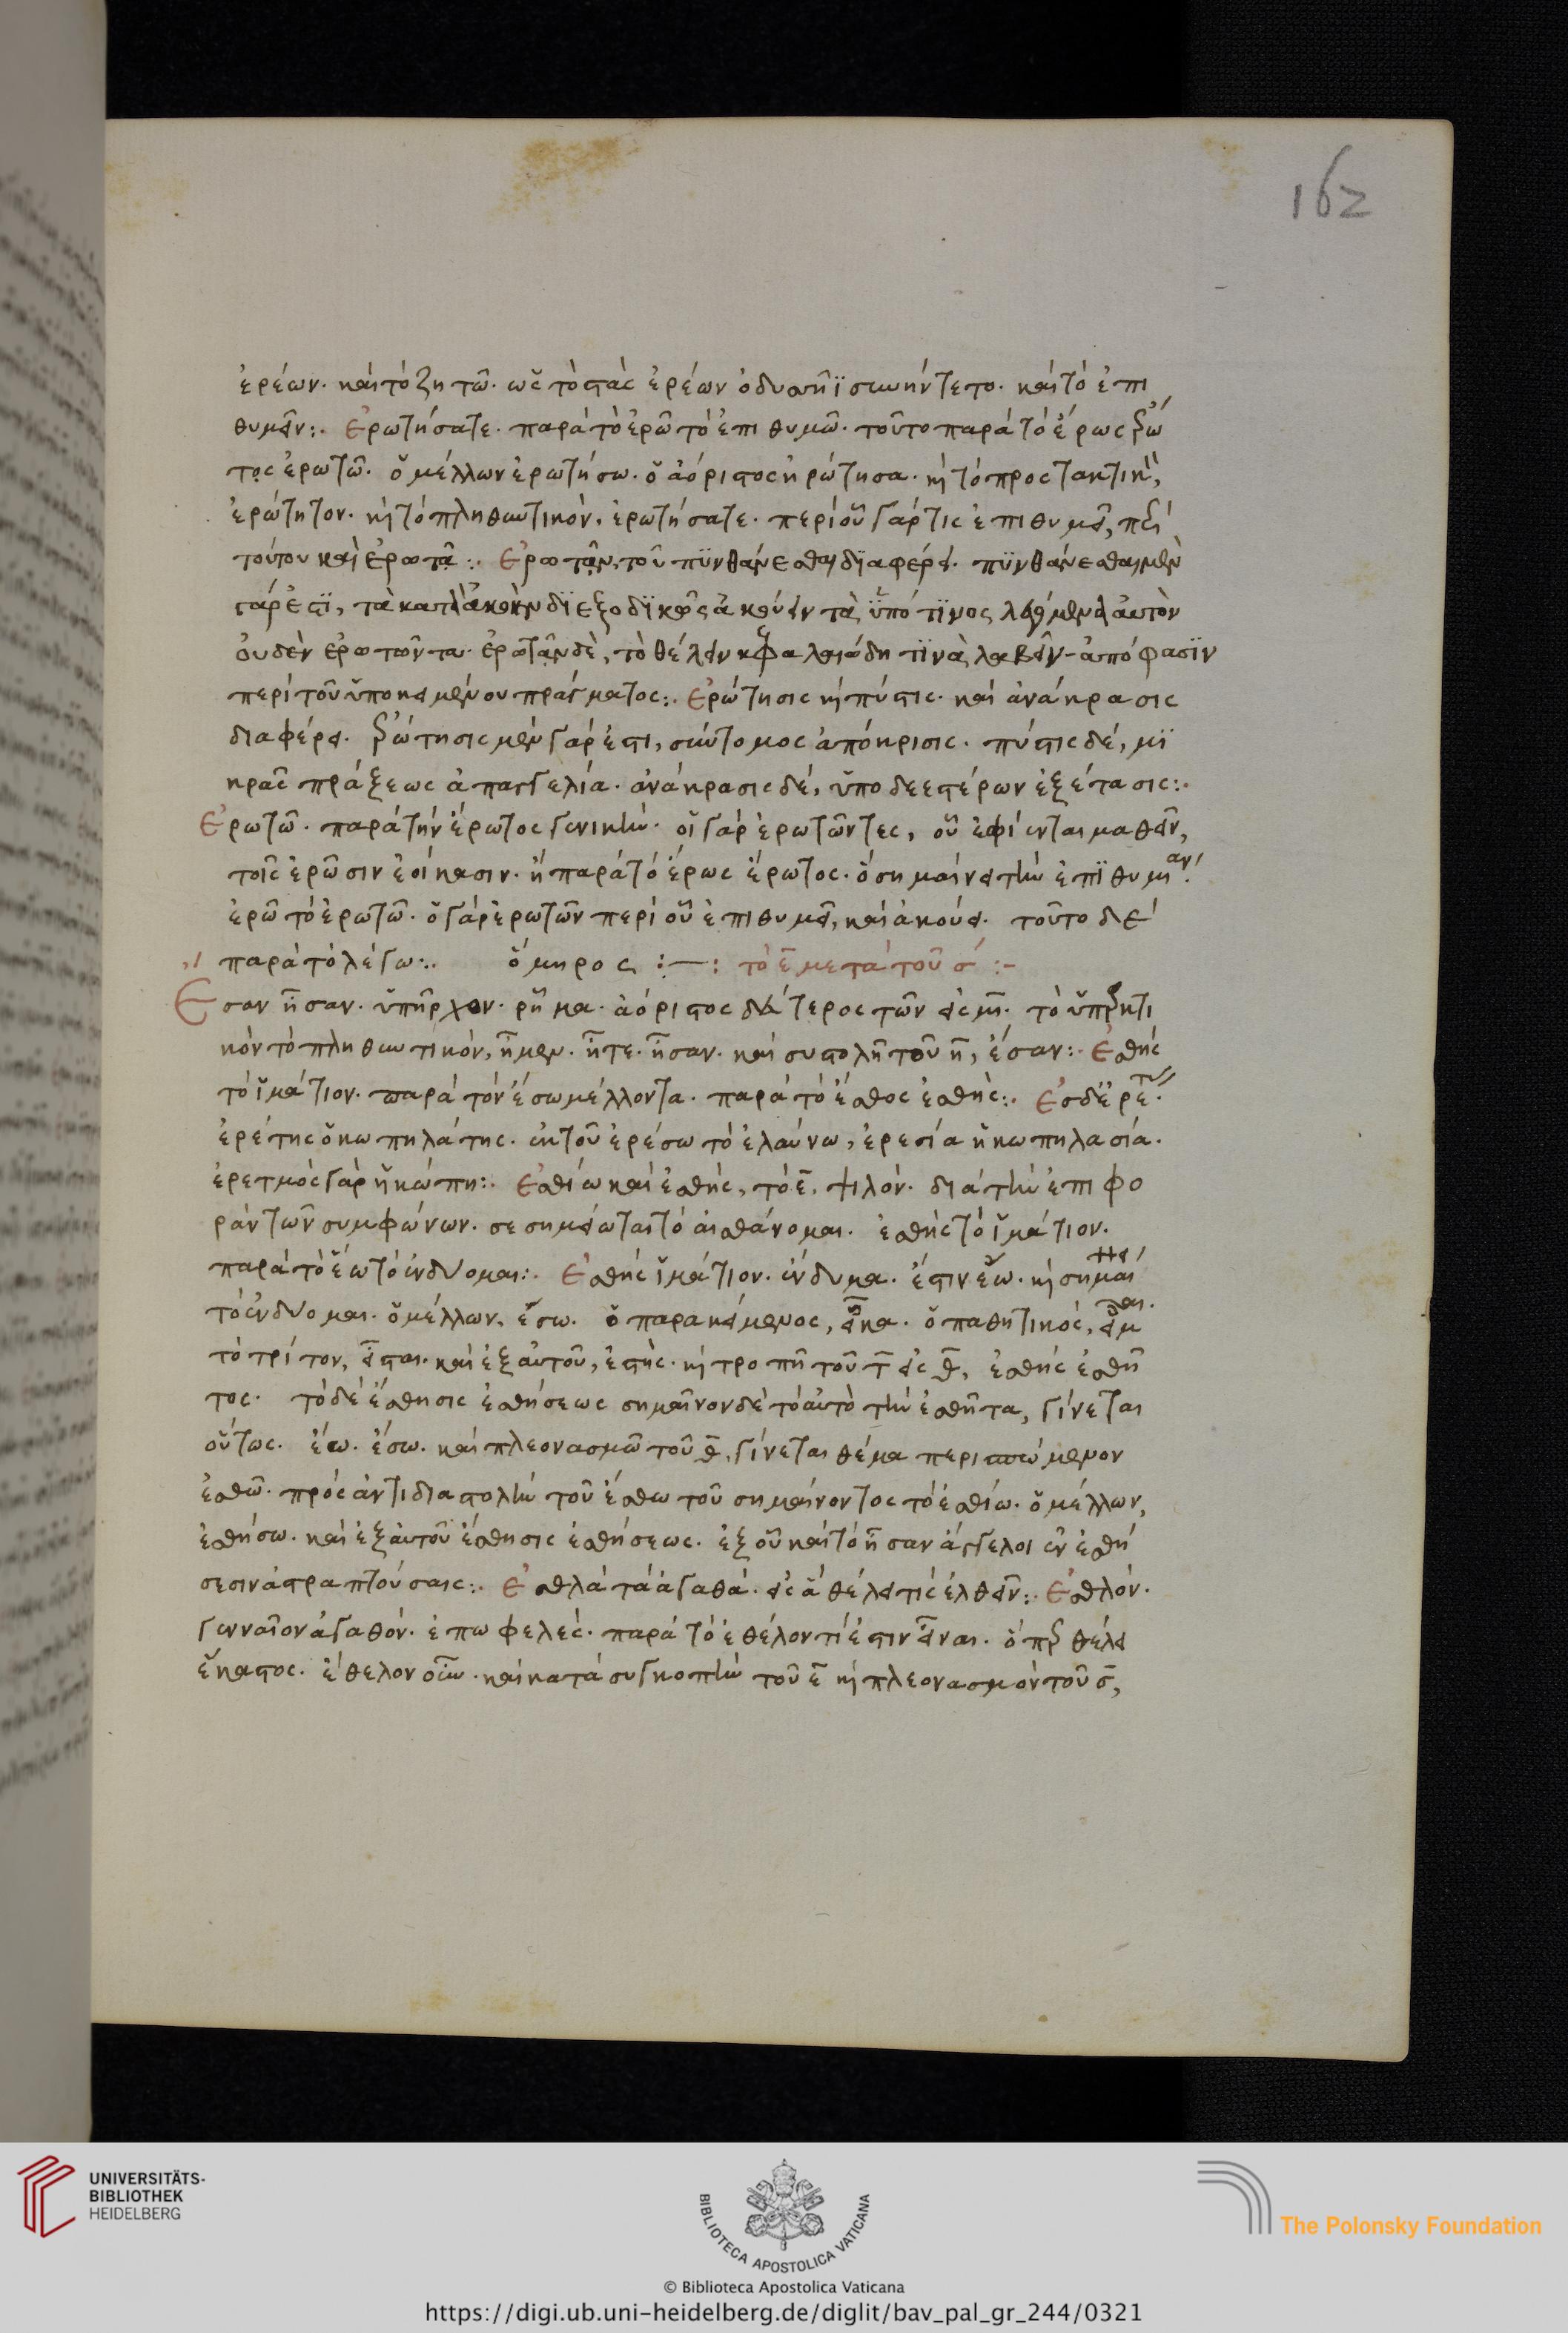 162
ἐρέων· καὶ τὸ ζητῶ· ὡς τὸ στὰς ἐρέων ὀδυσῆϊ συνήντετο· καὶ τὸ ἐπι
θυμεῖν:· Ἐρωτήσατε· παρὰ τὸ ἐρῶ τὸ ἐπιθυμῶ· τοῦτο παρὰ τὸ ἔρως ἔρω
τος ἐρωτῶ· ὁ μέλλων ἐρωτήσω· ὁ ἀόριστος ἠρώτησα· καὶ τὸ προστακτικὸν,
ἐρώτητον· καὶ τὸ πληθυντικὸν, ἐρωτήσατε· περὶ οὗ γάρ τις ἐπιθυμεῖ, περὶ
τούτου καὶ ἐρωτᾶ:· Ἐρωτᾶν, τοῦ πϋνθάνεσθαι δϊαφέρει· πϋνθάνεσθαι μὲν
γάρ ἐστϊ, τὰ δϊεξοδϊκῶς ἀκούειν τὰ ὑπό τϊνος λεγόμενα αὐτὸν
οὐδὲν ἐρωτῶντα· ἐρωτᾶν δὲ, τὸ θέλειν κεφαλαιώδη τϊνὰ λαβεῖν ἀπόφασϊν
περὶ τοῦ ὑποκειμένου πράγματος:· Ἐρώτησις καὶ πύστις· καὶ ἀνάκρασις
διαφέρει· ἐρώτησις μὲν γάρ ἐστι, σύντομος ἀπόκρισις· πύστις δέ, μϊ
κρᾶς πράξεως ἀπαγγελία· ἀνάκρασις δέ, ὑποδεεστέρων ἐξέτασις:·
Ἐρωτῶ· παρὰ τὴν ἔρωτος γενικήν· οἱ γὰρ ἐρωτῶντες, οὗ ἐφίενται μαθεῖν,
τοῖς ἐρῶσιν ἐοίκασιν· ἢ παρὰ τὸ ἔρως ἔρωτος· ὃ σημαίνει τὴν ἐπϊθυμίαν·
ἐρῶ τὸ ἐρωτῶ· ὁ γὰρ ἐρωτῶν περὶ οὗ ἐπιθυμεῖ, καὶ ἀκούει· τοῦτο δὲ
παρὰ τὸ λέγω:· ὅμηρος :—: τὸ ε̄ μετὰ τοῦ σ :-
Ἔσαν ἦσαν· ὑπῆρχον· ῥῆμα· ἀόριστος δεύτερος τῶν εἰς μι· τὸ ὑπαρκτι
κὸν τὸ πληθυντικόν, ἦμεν· ἦτε· ἦσαν· καὶ συστολῇ τοῦ η̄, ἔσαν:· Ἐσθὴς
τὸ ἱμάτιον· παρὰ τὸν ἕσω μέλλοντα· παρὰ τὸ ἔσθος ἐσθής:· Ἐσδ ἐρέτην·
ἐρέτης ὁ κωπηλάτης· ἐκ τοῦ ἐρέσω τὸ ἐλαύνω, ἐρεσία ἡ κωπηλασία·
ἐρετμὸς γὰρ ἡ κώπη:· Ἐσθίω καὶ ἐσθής, τὸ ε̄, ψιλόν· διὰ τὴν ἐπιφο
ρὰν τῶν συμφώνων· σεσημείωται τὸ αἰσθάνομαι· ἐσθὴς τὸ ἱμάτιον·
παρὰ τὸ ἕω τὸ ἐνδύομαι:· Ἐσθὴς ἱμάτιον· ἔνδυμα· ἔστιν ἕω· καὶ σημαίνει
τὸ ἐνδύομαι· ὁ μέλλων, ἕσω· ὁ παρακείμενος, εἷκα· ὁ παθητικός, εἷμαι·
τὸ τρίτον, εἷσται· καὶ ἐξ αὐτοῦ, ἐστής· καὶ τροπῇ τοῦ τ̄ εἰς θ̄, ἐσθής ἐσθῆ
τος· τὸ δὲ ἔσθησις ἐσθήσεως σημαῖνον δὲ τὸ αὐτὸ τὴν ἐσθῆτα, γίνεται
οὕτως· ἕω· ἕσω· καὶ πλεονασμῶ τοῦ θ̄, γίνεται θέμα περισπώμενον
ἐσθῶ· πρὸς ἀντιδιαστολὴν τοῦ ἔσθω τοῦ σημαίνοντος τὸ ἐσθίω· ὁ μέλλων,
ἐσθήσω· καὶ ἐξ αὐτοῦ ἔσθησις ἐσθήσεως· ἐξ οὗ καὶ τὸ ἦσαν ἄγγελοι ἐν ἐσθή
σεσιν ἀστραπτούσαις:· Ἐσθλὰ τὰ ἀγαθά· εἰς ἃ θέλει τίς ἐλθεῖν:· Ἐσθλόν·
γενναῖον ἀγαθόν· ἐπωφελές· παρὰ τὸ ἐθέλον τί ἐστιν εἶναι· ὅπερ θέλει
ἕκαστος· ἔθελον οἷον· καὶ κατὰ συγκοπὴν τοῦ ε̄ καὶ πλεονασμὸν τοῦ σ̄,
UNIVERSITÄTS-
BIBLIOTHEK
HEIDELBERG
BIBLIOTECA APOSTOLICA VATICANA
The Polonsky Foundation
© Biblioteca Apostolica Vaticana
https://digi.ub.uni-heidelberg.de/diglit/bav_pal_gr_244/0321